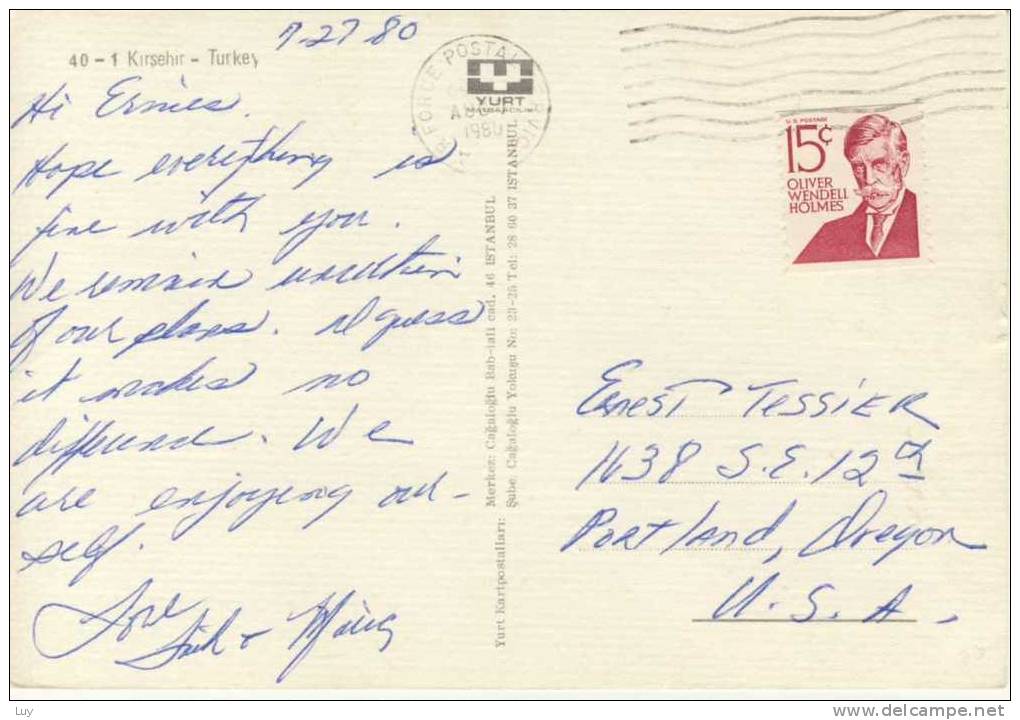 7-27 80
40 - 1 Kırşehir - Turkey
Hi Ernies.
Hope everything is
fine with you.
We remain uncertain
of our plans. I guess
it makes no
difference. We
are enjoying our-
self.
Love
&
FORCE POSTAL
AUG
1980
YURT
Yurt Kartpostalları:
Merkez: Cağaloğlu Bab-ıali cad. 46 İSTANBUL
Şube. Cağaloğlu Yokuşu No: 23-25 Tel: 28 60 37 İSTANBUL
U.S. POSTAGE
15¢
OLIVER
WENDELL
HOLMES
Ernest Tessier
1638 S.E. 12th
Portland, Oregon
U.S.A.
Luy
www.delcampe.net